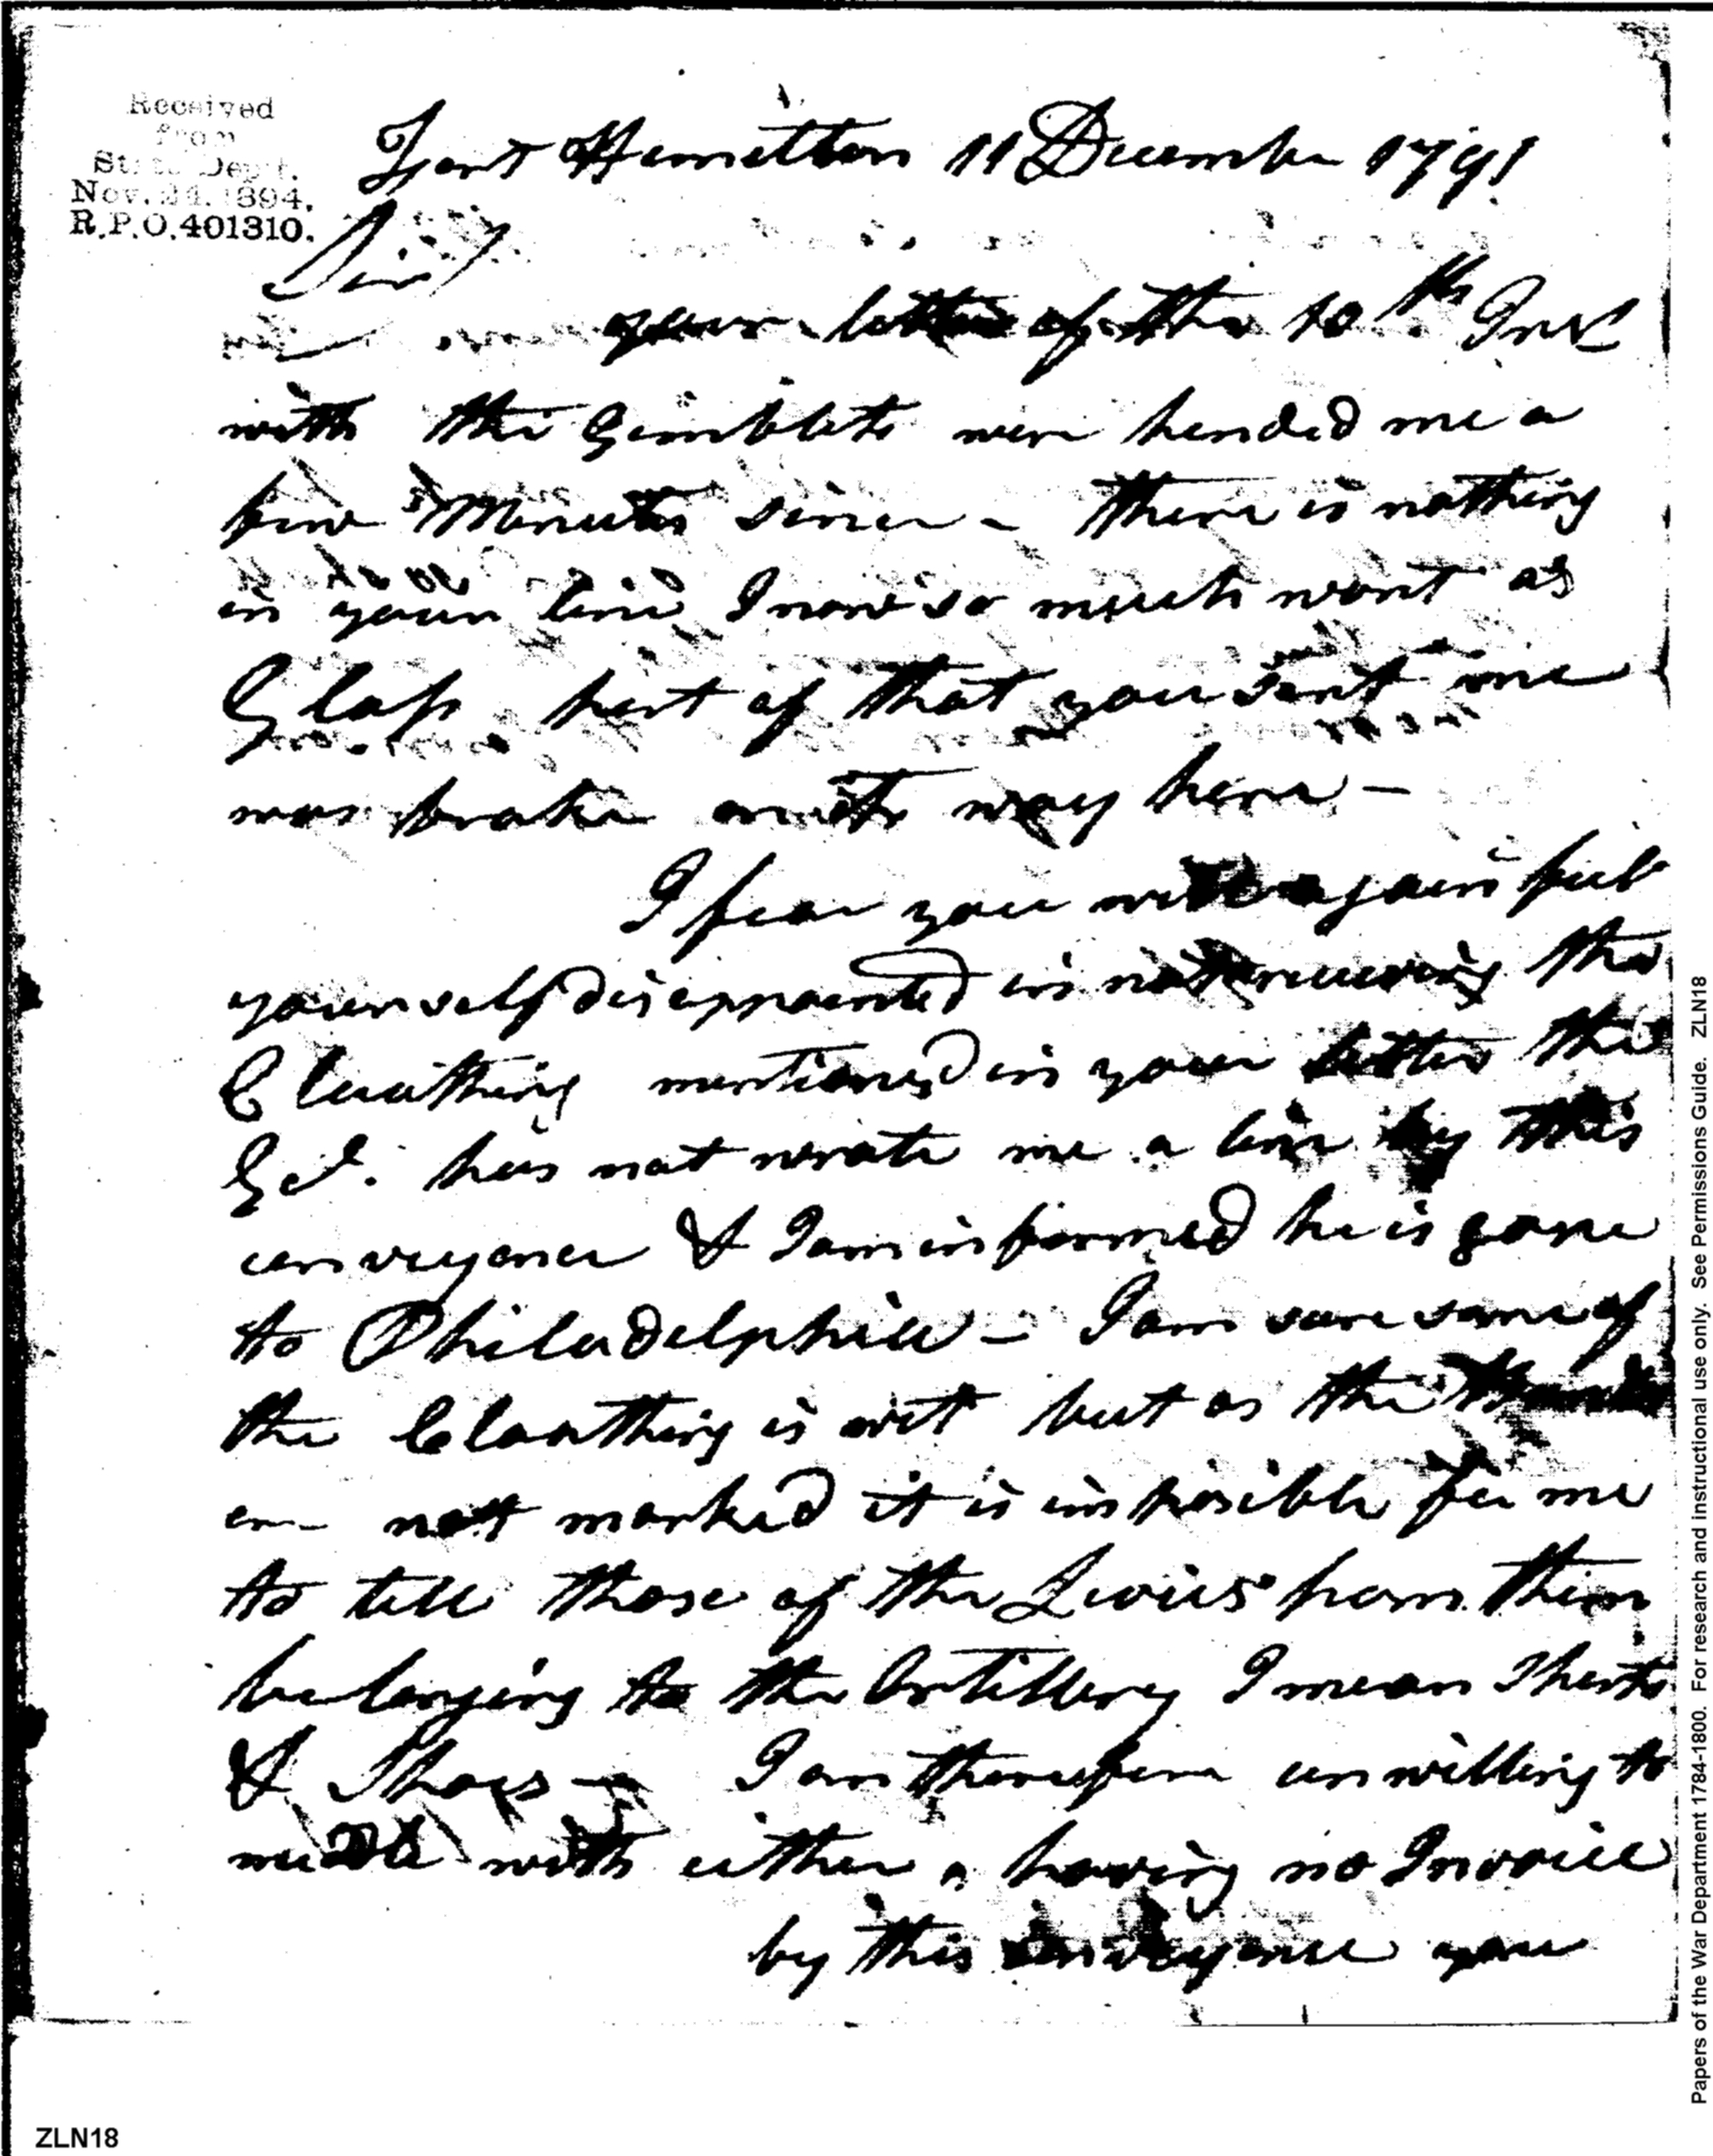 Received
from
State Dep't.
Nov. 24. 1894.
R.P.O. 401310.
Fort Hamilton 11 December 1791
Sir
your letter of the 10th Inst
with the Gimblets were handed me a
few Minutes since - there is nothing
in your line I now so much want as
Glass part of that you sent me
was broke on its way here -
I fear you will again feel
yourself disappointed in not receiving the
Cloathing mentioned in your letter the
Gel. has not wrote me a line by this
conveyance & I am informed he is gone
to Philadelphia - I am sure some of
the Cloathing is wet but as the
are not marked it is imposible for me
to tell those of the Levies from them
belonging to the Artillery I mean Sherts
& Shoes - I am therefore unwilling to
meddle with either, having no Invoice
by this conveyance you
Papers of the War Department 1784-1800. For research and instructional use only. See Permissions Guide. ZLN18
ZLN18